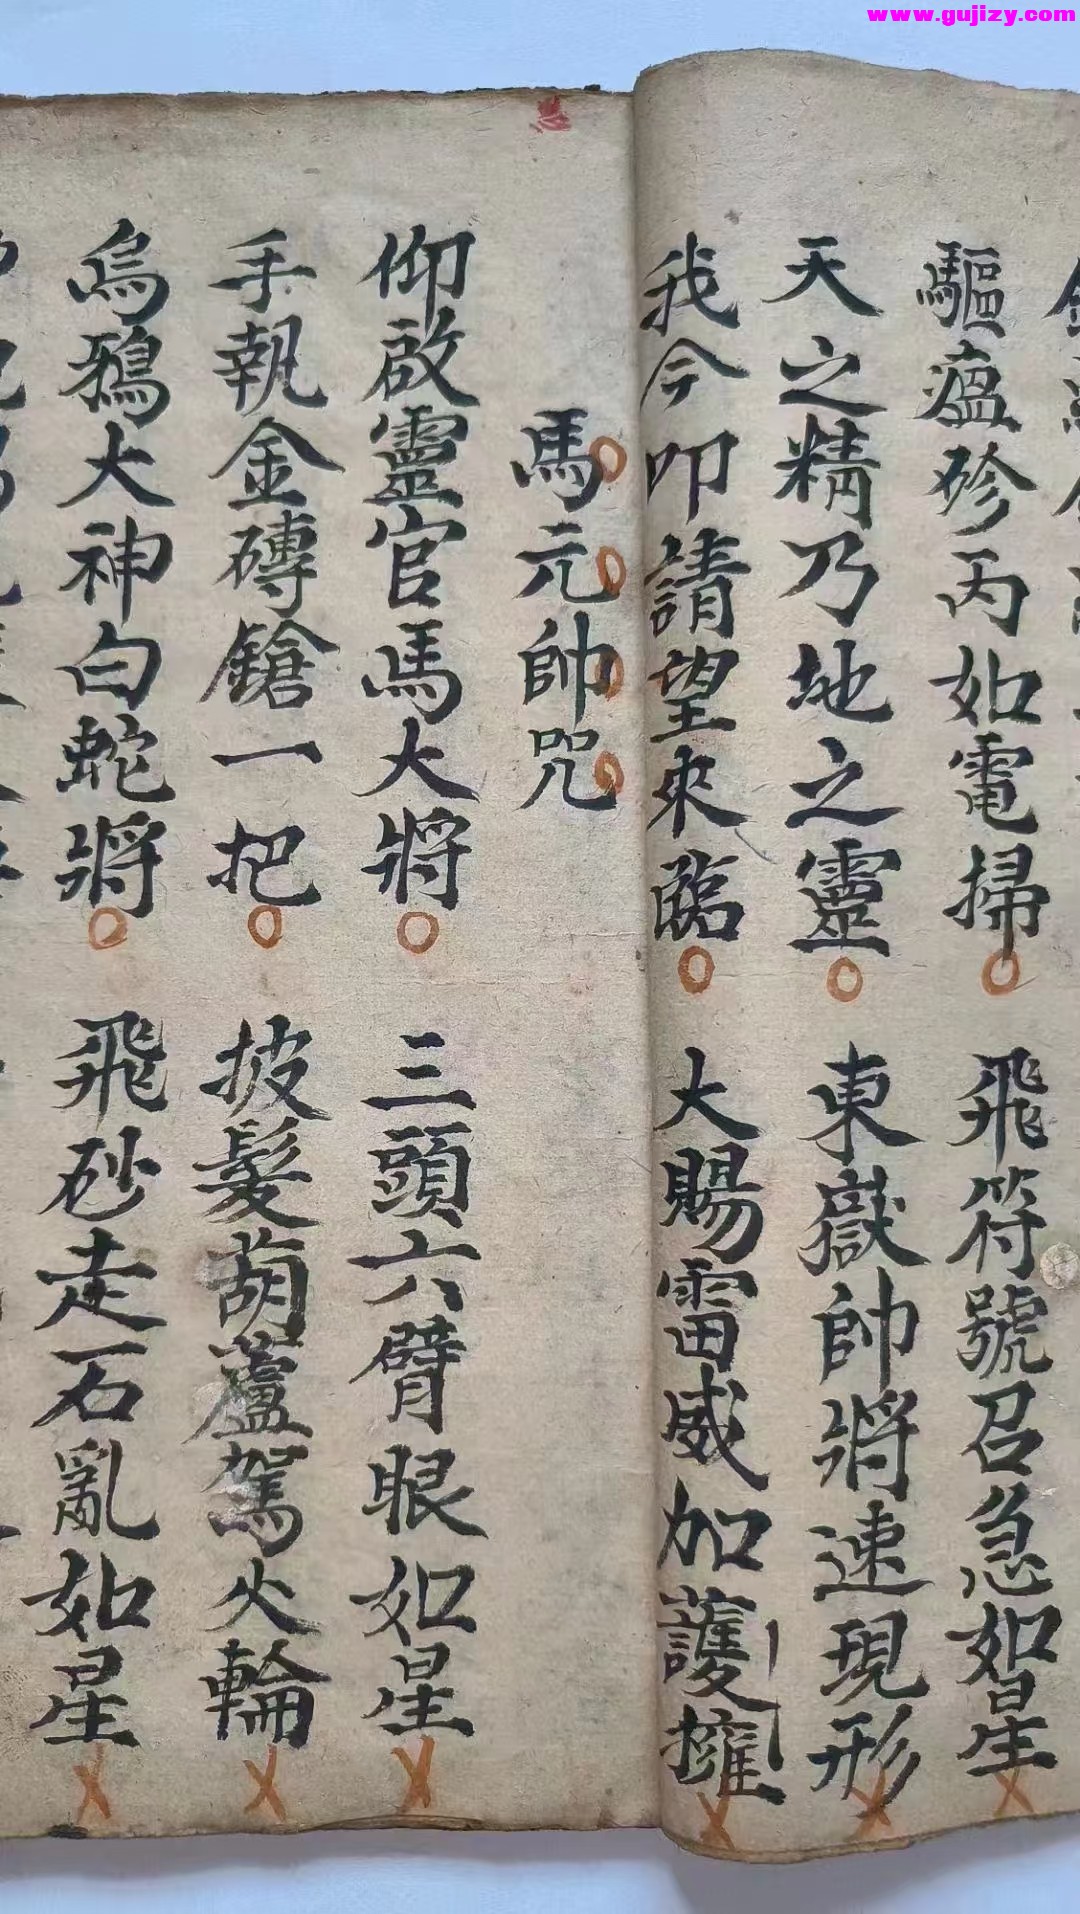 www.gujizy.com
驅瘟殄丙如電掃 飛符號召急如星
天之精乃地之靈 東嶽帥將速現形
我今叩請望來臨 大賜雷威加護擁
馬元帥咒
仰啟靈官馬大將 三頭六臂眼如星
手執金磚鎗一把 披髮葫蘆駕火輪
烏鴉大神白蛇將 飛砂走石亂如星